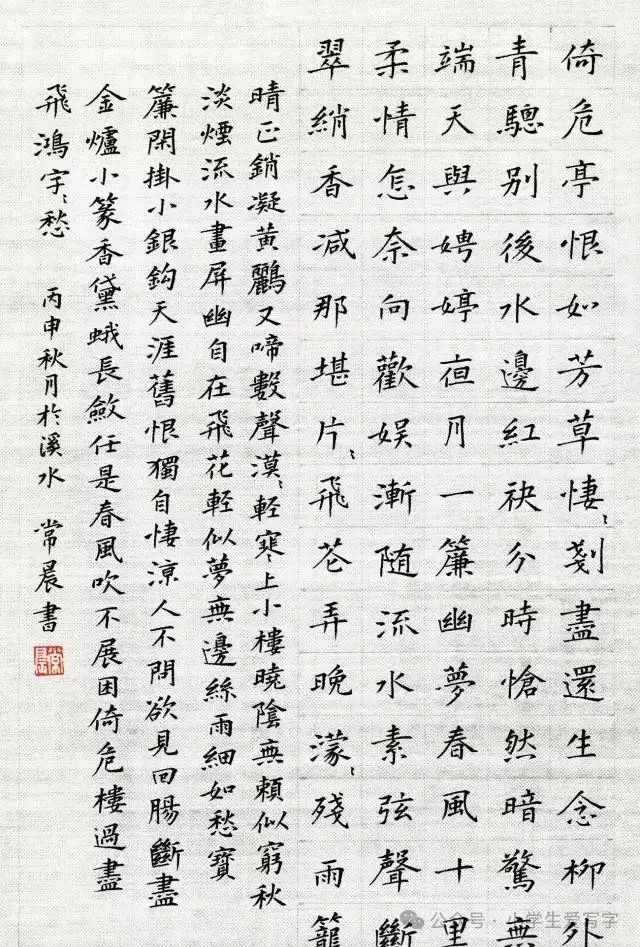 倚危亭恨如芳草悽〻剗盡還生念柳外
青驄別後水邊紅袂分時愴然暗驚無
端天與娉婷夜月一簾幽夢春風十里
柔情怎奈向歡娛漸隨流水素弦聲斷
翠綃香減那堪片〻飛花弄晚濛〻殘雨籠
晴正銷凝黃鸝又啼數聲漠〻輕寒上小樓曉陰無賴似窮秋
淡煙流水畫屏幽自在飛花輕似夢無邊絲雨細如愁寶
簾閑掛小銀鈎天涯舊恨獨自悽涼人不問欲見回腸斷盡
金爐小篆香黛蛾長斂任是春風吹不展困倚危樓過盡
飛鴻字〻愁 丙申秋月於溪水 常晨書
公众号·小学生爱写字